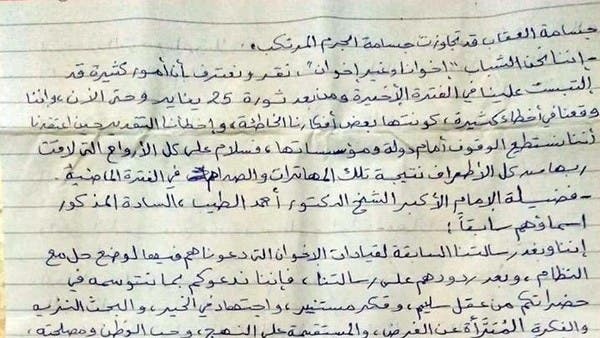 جسامة العقاب قد تجاوزت جسامة الجرم المرتكب.
- إننا نحن الشباب "إخوانا وغير إخوان"، نقر ونعترف أن أمور كثيرة قد
التبست علينا في الفترة الأخيرة ومن بعد ثورة 25 يناير وحتى الآن، وإننا
وقعنا في أخطاء كثيرة، كونتها بعض أفكارنا الخاطئة، وأخطأنا التقدير حين اعتقدنا
أننا نستطيع الوقوف أمام دولة ومؤسساتها، فسلام على كل الأرواح التي لاقت
ربها من كل الأطراف نتيجة تلك المهاترات والصدام في الفترة الماضية.
- فضيلة الإمام الأكبر الشيخ الدكتور أحمد الطيب، السادة المذكور
أسماؤهم سابقاً:
إننا وبعد رسالتنا السابقة لقيادات الإخوان التي دعوناهم فيها لوضع حل مع
النظام، وبعد ردودهم على رسالتنا، فإننا ندعوكم بما نتوسمه في
حضراتكم من عقل سليم، وفكر مستنير، واجتهاد في الخير، والبحث النزيه
والفكرة المُتبرأة عن الغرض، والمستقيمة على النهج، وحب الوطن ومصلحته،